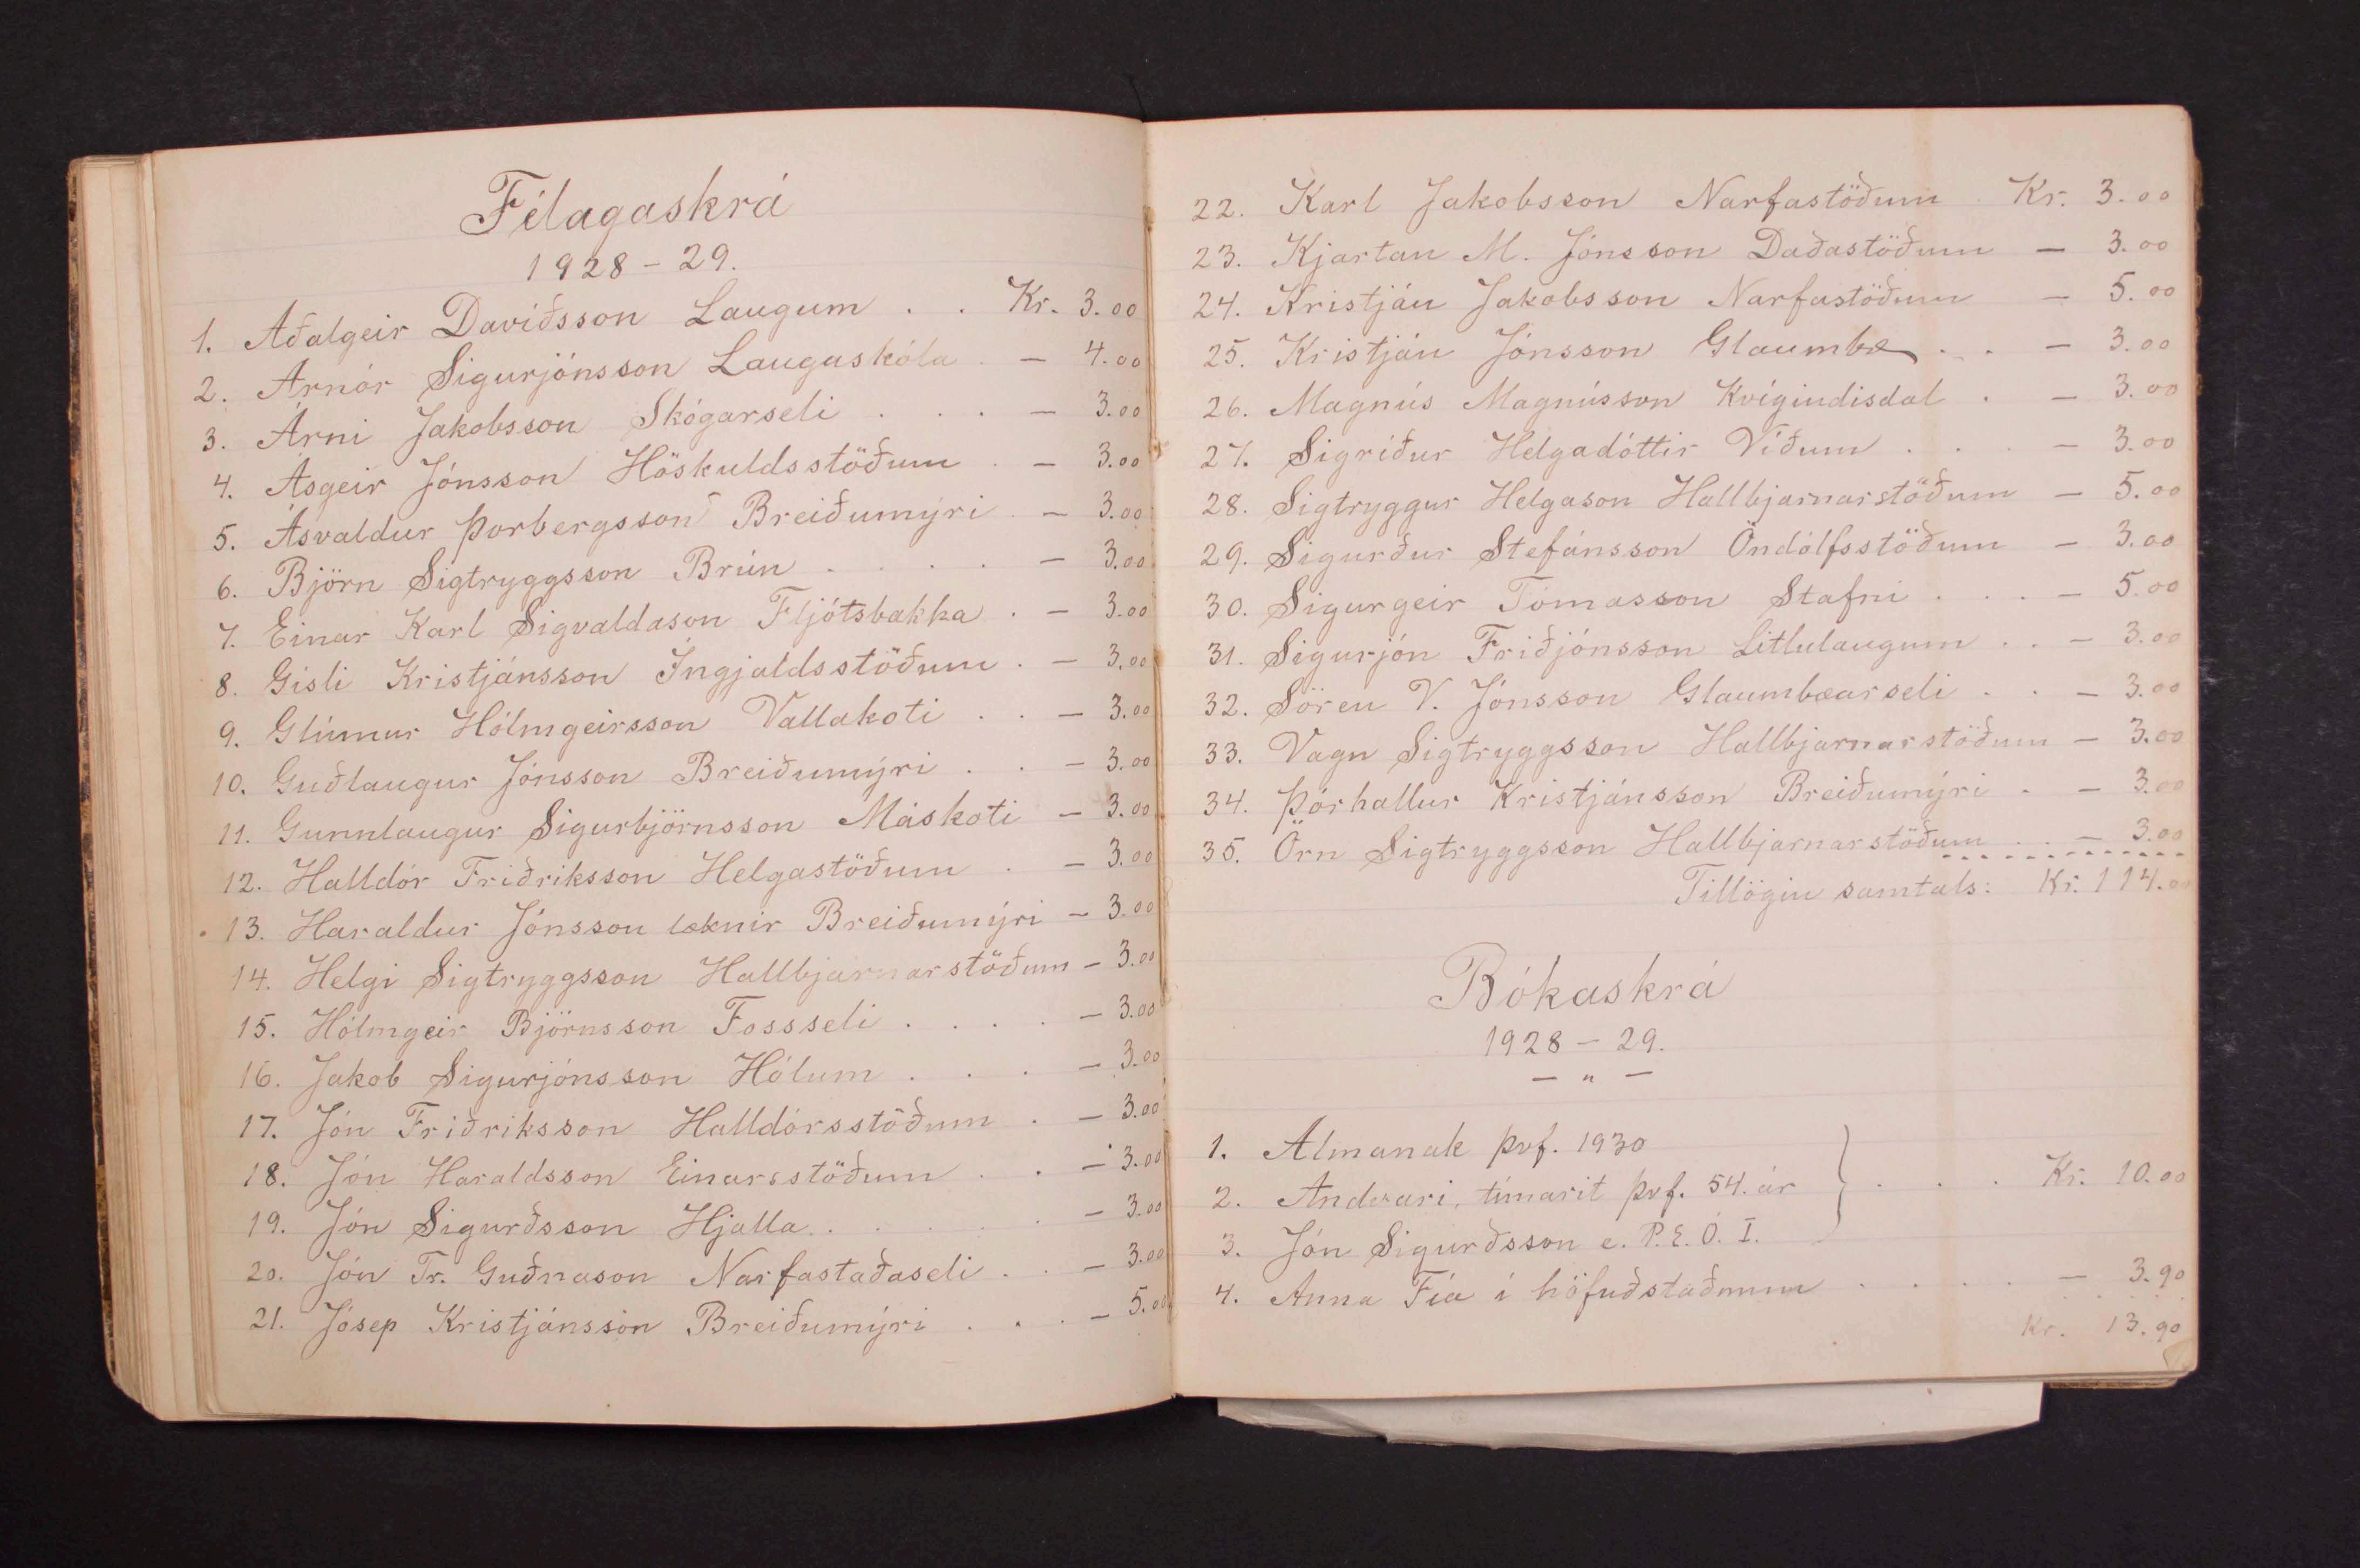 Félagaskrá
1928 - 29.
1. Aðalgeir Davíðsson Laugum . . Kr. 3.00
2. Arnór Sigurjónsson Laugaskóla . - 4.00
3. Árni Jakobsson Skógarseli . . . - 3.00
4. Ásgeir Jónsson Höskuldsstöðum . - 3.00
5. Ásvaldur Þorbergsson Breiðumýri . - 3.00
6. Björn Sigtryggsson Brún . . . . - 3.00
7. Einar Karl Sigvaldason Fljótsbakka . - 3.00
8. Gísli Kristjánsson Ingjaldsstöðum . - 3.00
9. Glúmur Hólmgeirsson Vallakoti . . - 3.00
10. Guðlaugur Jónsson Breiðumýri . . - 3.00
11. Gunnlaugur Sigurbjörnsson Máskoti - 3.00
12. Halldór Friðriksson Helgastöðum . - 3.00
13. Haraldur Jónsson læknir Breiðumýri - 3.00
14. Helgi Sigtryggsson Hallbjarnarstöðum - 3.00
15. Hólmgeir Björnsson Fossseli . . . . - 3.00
16. Jakob Sigurjónsson Hólum . . . - 3.00
17. Jón Friðriksson Halldórsstöðum . - 3.00
18. Jón Haraldsson Einarsstöðum . . - 3.00
19. Jón Sigurðsson Hjalla . . . . . - 3.00
20. Jón Tr. Guðnason Narfastaðaseli . . - 3.00
21. Jósep Kristjánsson Breiðumýri . . . - 5.00
22. Karl Jakobsson Narfastöðum . Kr. 3.00
23. Kjartan M. Jónsson Daðastöðum - 3.00
24. Kristján Jakobsson Narfastöðum - 5.00
25. Kristján Jónsson Glaumbæ . . - 3.00
26. Magnús Magnússon Kvígindisdal . - 3.00
27. Sigríður Helgadóttir Víðum . . . - 3.00
28. Sigtryggur Helgason Hallbjarnarstöðum - 5.00
29. Sigurður Stefánsson Öndólfsstöðum - 3.00
30. Sigurgeir Tómasson Stafni . . . - 5.00
31. Sigurjón Friðjónsson Litlulaugum . . - 3.00
32. Sören V. Jónsson Glaumbæarseli . . - 3.00
33. Vagn Sigtryggsson Hallbjarnarstöðum - 3.00
34. Þórhallur Kristjánsson Breiðumýri . - 3.00
35. Örn Sigtryggsson Hallbjarnarstöðum . . - 3.00
Tillögin samtals: Kr. 114.00
Bókaskrá
1928 - 29.
- " -
1. Almanak Þvf. 1930
2. Andvari, tímarit Þvf. 54. ár } . . . Kr. 10.00
3. Jón Sigurðsson e. P.E.Ó. I.
4. Anna Fía í höfuðstaðnum . . . . - 3.90
Kr. 13.90